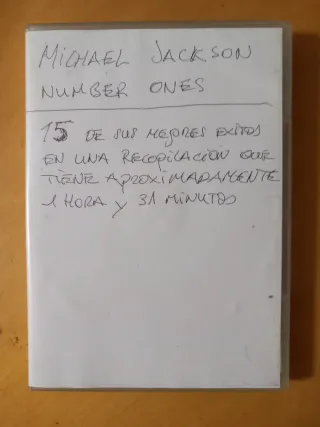 MICHAEL JACKSON
NUMBER ONES
15 DE SUS MEJORES EXITOS
EN UNA RECOPILACION QUE
TIENE APROXIMADAMENTE
1 HORA Y 31 MINUTOS